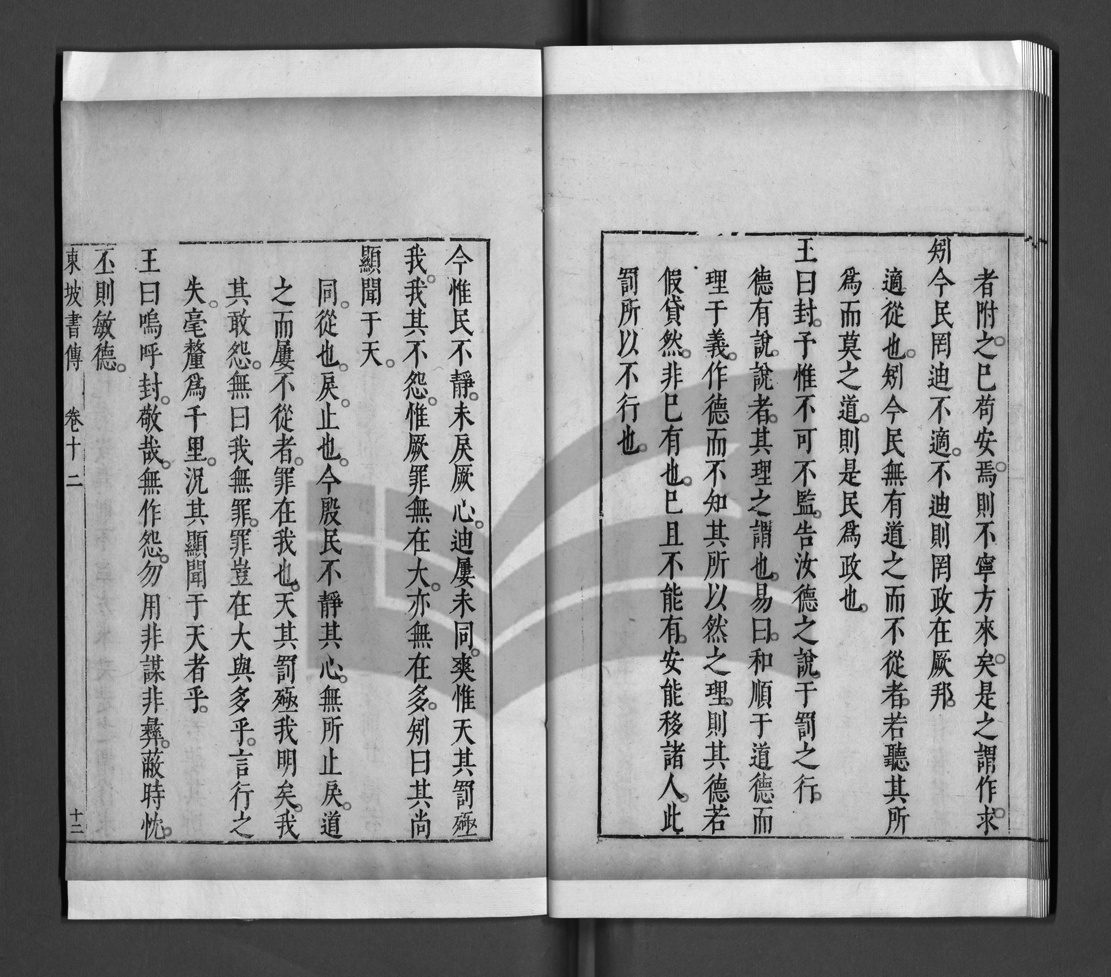 者附之已苟安焉則不寧方來矣是之謂作求
矧今民罔迪不適不迪則罔政在厥邦
適從也矧今民無有道之而不從者若聽其所
爲而莫之道則是民爲政也
王曰封予惟不可不監告汝德之說于罰之行
德有說說者其理之謂也易曰和順于道德而
理于義作德而不知其所以然之理則其德若
假貸然非已有也已且不能有安能移諸人此
罰所以不行也
今惟民不靜未戾厥心迪屢未同爽惟天其罰殛
我我其不怨惟厥罪無在大亦無在多矧曰其尚
顯聞于天
同從也戾止也今殷民不靜其心無所止戾道
之而屢不從者罪在我也天其罰殛我明矣我
其敢怨無曰我無罪罪豈在大與多乎言行之
失毫釐爲千里況其顯聞于天者乎
王曰嗚呼封敬哉無作怨勿用非謀非彝蔽時忱
丕則敏德
東坡書傳 卷十二 十二